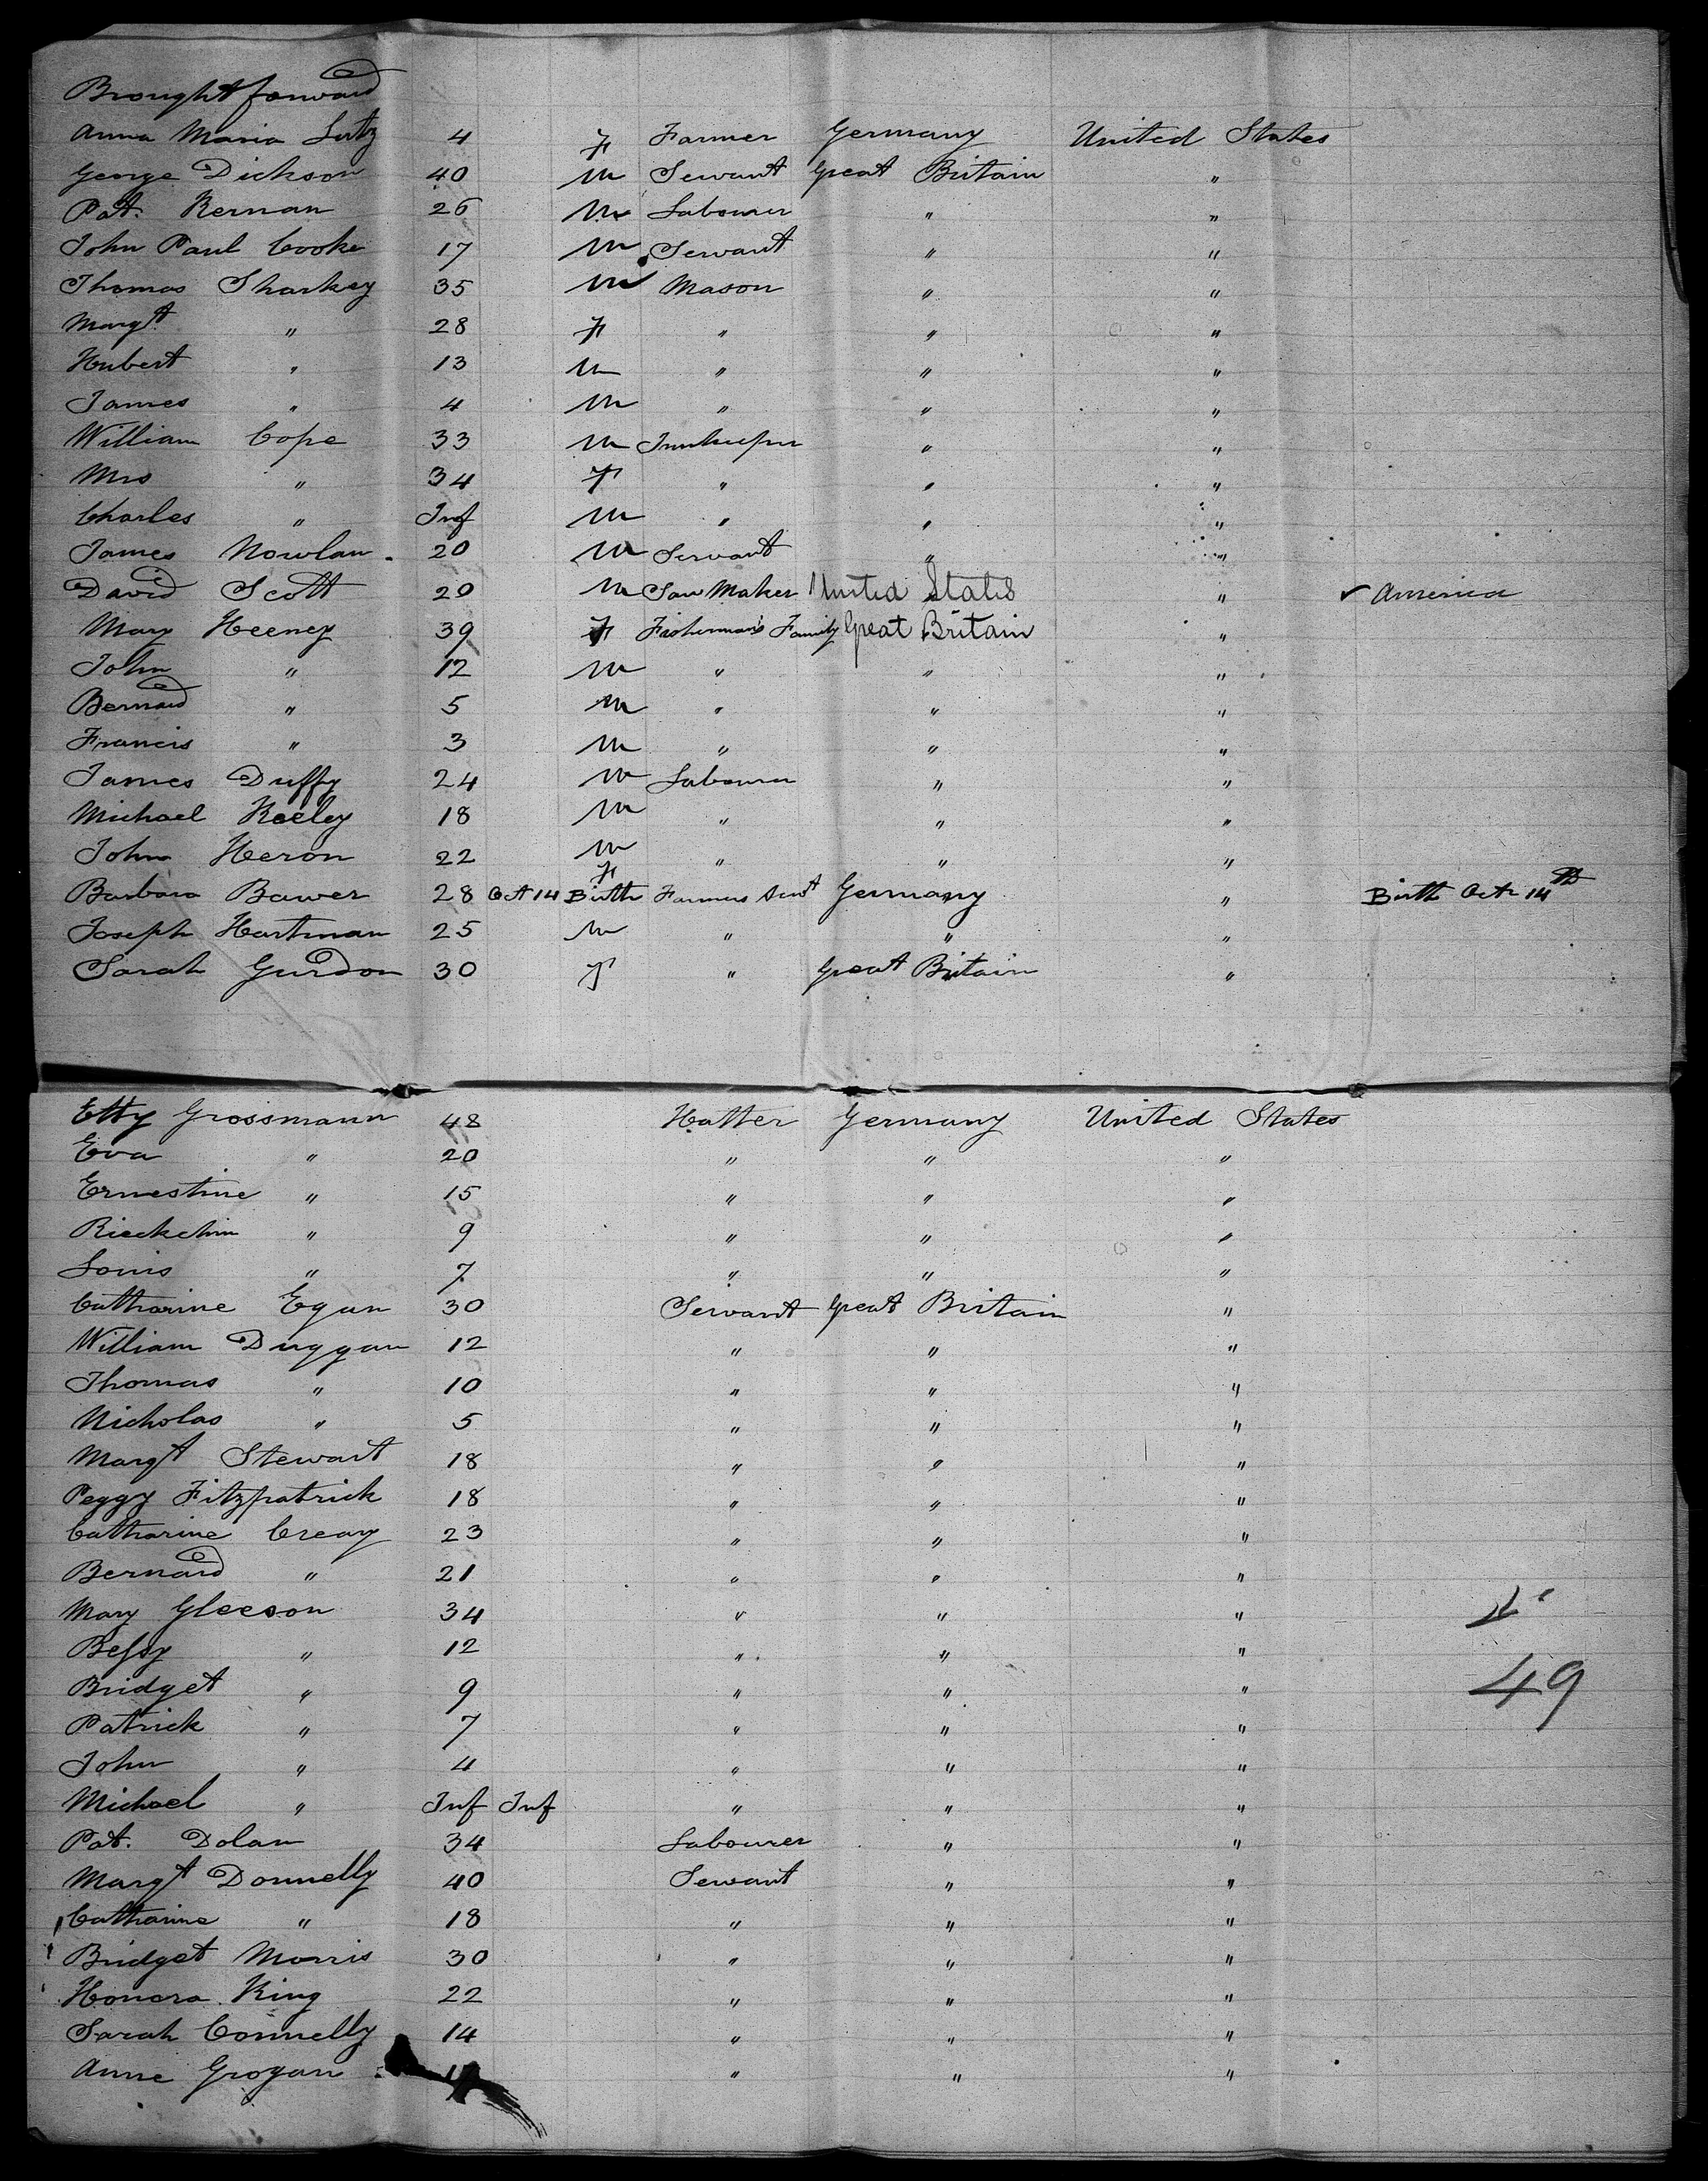 Brought forward
Anna Maria Lutz 4 F Farmer Germany United States
George Dickson 40 M Servant Great Britain "
Pat. Kernan 26 M Labourer " "
John Paul Cooke 17 M Servant " "
Thomas Sharkey 35 M Mason " "
Margt " 28 F " " "
Hubert " 13 M " " "
James " 4 M " " "
William Cope 33 M Innkeeper " "
Mrs " 34 F " " "
Charles " Inf M " " "
James Nowlan 20 M Servant " "
David Scott 20 M Saw Maker United States " ✓ America
Mary Heeney 39 F Fisherman's Family Great Britain "
John " 12 M " " "
Bernard " 5 M " " "
Francis " 3 M " " "
James Duffy 24 M Labourer " "
Michael Keeley 18 M " " "
John Heron 22 M " " "
Barbara Bawer 28 Oct 14 Birth F Farmers Servt Germany " Birth Octr 14th
Joseph Hartman 25 M " " "
Sarah Gurdon 30 F " Great Britain "
Etty Grossmann 48 Hatter Germany United States
Eva " 20 " " "
Ernestine " 15 " " "
Rieckchin " 9 " " "
Louis " 7 " " "
Catharine Egan 30 Servant Great Britain "
William Duggan 12 " " "
Thomas " 10 " " "
Nicholas " 5 " " "
Margt Stewart 18 " " "
Peggy Fitzpatrick 18 " " "
Catharine Creary 23 " " "
Bernard " 21 " " "
Mary Gleeson 34 " " "
Bessy " 12 " " "
Bridget " 9 " " " 49
Patrick " 7 " " "
John " 4 " " "
Michael " Inf Inf " " "
Pat. Dolan 34 Labourer " "
Margt Donnelly 40 Servant " "
Catharine " 18 " " "
Bridget Morris 30 " " "
Honora King 22 " " "
Sarah Connelly 14 " " "
Anne Grogan " " "